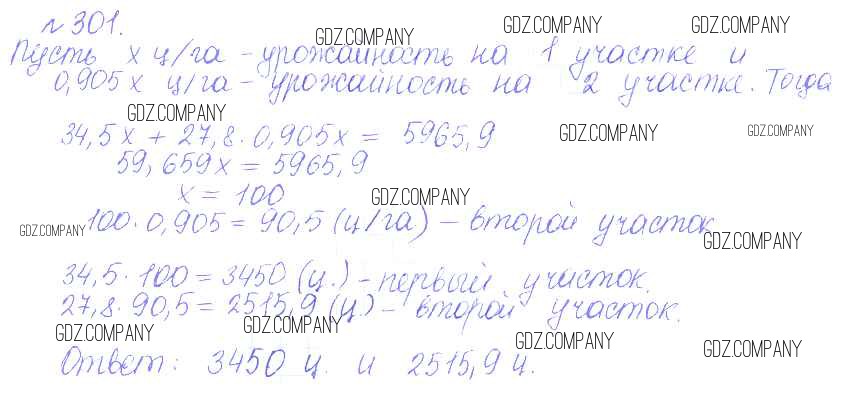 №301.
GDZ.COMPANY GDZ.COMPANY GDZ.COMPANY
Пусть х ц/га - урожайность на 1 участке и
0,905х ц/га - урожайность на 2 участке. Тогда
GDZ.COMPANY
34,5х + 27,8·0,905х = 5965,9 GDZ.COMPANY GDZ.COMPANY
59,659х = 5965,9
х = 100 GDZ.COMPANY
GDZ.COMPANY 100·0,905 = 90,5 (ц/га) - второй участок
GDZ.COMPANY
34,5·100 = 3450 (ц.) - первый участок.
27,8·90,5 = 2515,9 (ц.) - второй участок.
GDZ.COMPANY GDZ.COMPANY GDZ.COMPANY GDZ.COMPANY
Ответ: 3450 ц. и 2515,9 ц.